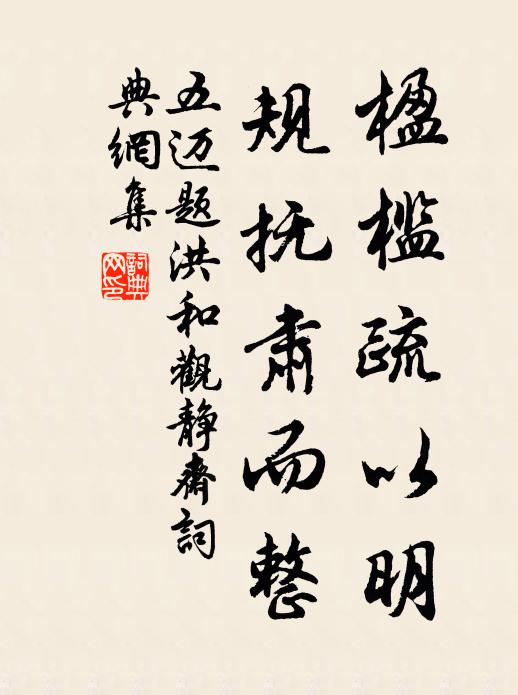 楹槛疏以明
规抚肃而整
五迈题洪和观静斋词
典网集
词典网印